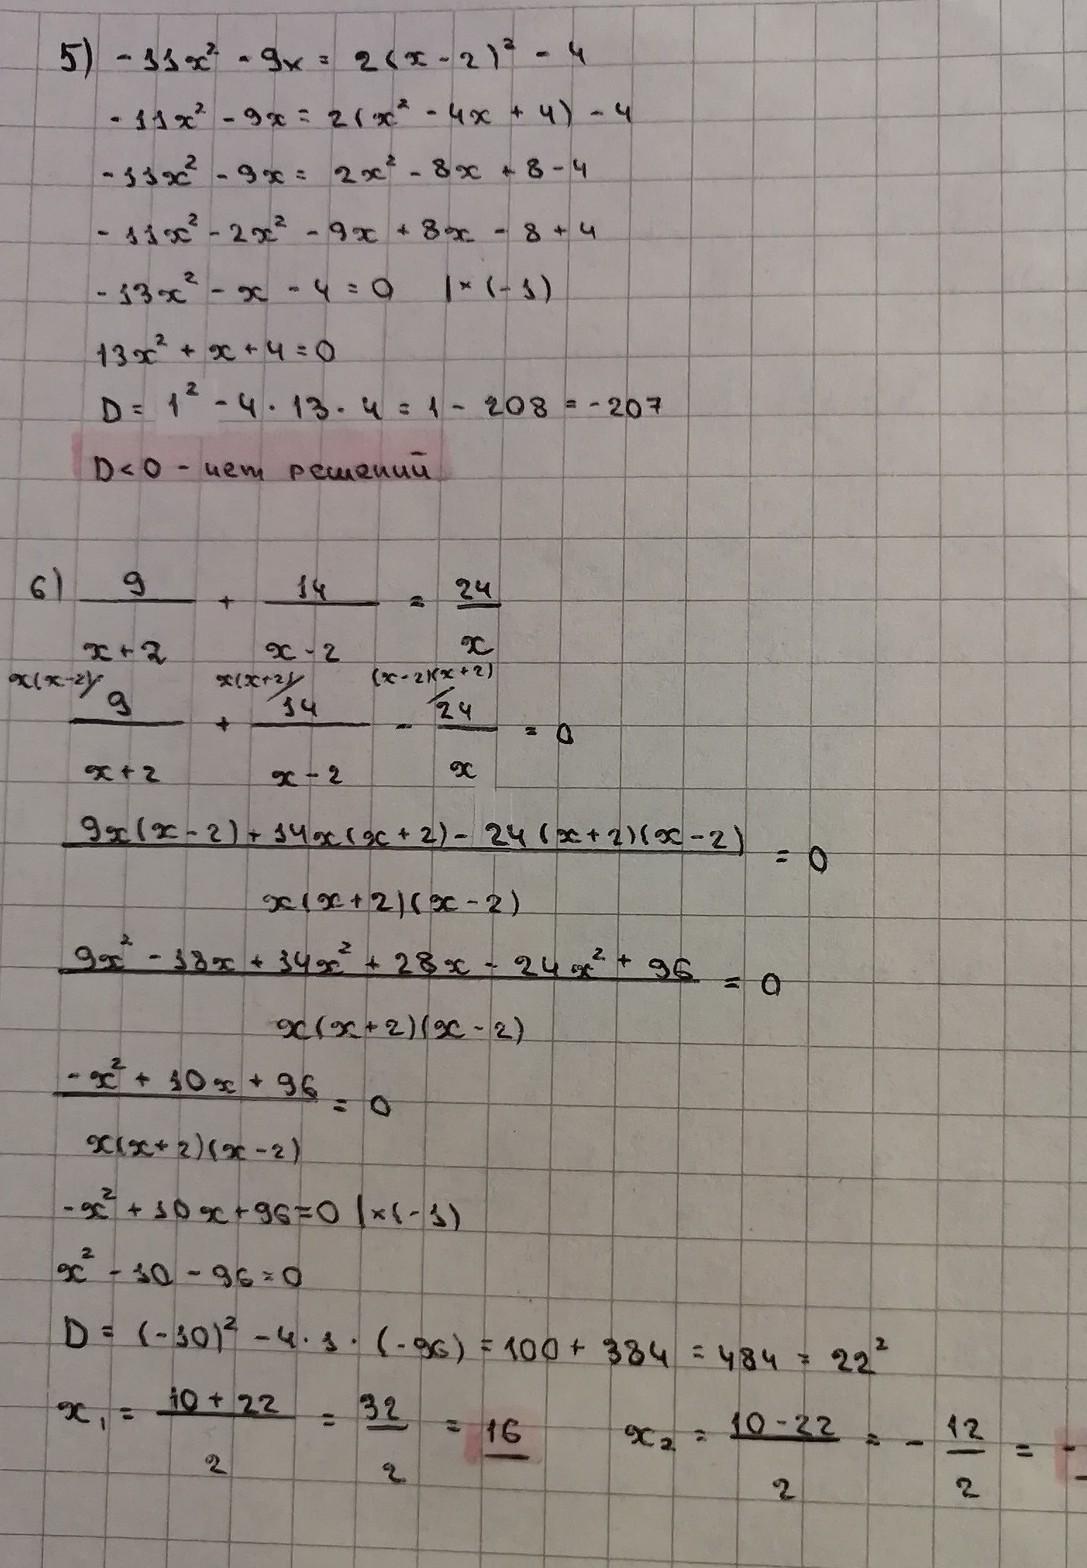 5) -11x² - 9x = 2(x - 2)² - 4
-11x² - 9x = 2(x² - 4x + 4) - 4
-11x² - 9x = 2x² - 8x + 8 - 4
-11x² - 2x² - 9x + 8x - 8 + 4
-13x² - x - 4 = 0 |×(-1)
13x² + x + 4 = 0
D = 1² - 4 · 13 · 4 = 1 - 208 = -207
D < 0 - нет решений
6) 9/(x+2) + 14/(x-2) = 24/x
x(x-2)/ x(x+2)/ (x-2)(x+2)/
9/(x+2) + 14/(x-2) - 24/x = 0
(9x(x-2) + 14x(x+2) - 24(x+2)(x-2))/(x(x+2)(x-2)) = 0
(9x² - 18x + 14x² + 28x - 24x² + 96)/(x(x+2)(x-2)) = 0
(-x² + 10x + 96)/(x(x+2)(x-2)) = 0
-x² + 10x + 96 = 0 |×(-1)
x² - 10 - 96 = 0
D = (-10)² - 4 · 1 · (-96) = 100 + 384 = 484 = 22²
x₁ = (10 + 22)/2 = 32/2 = 16 x₂ = (10 - 22)/2 = - 12/2 = -